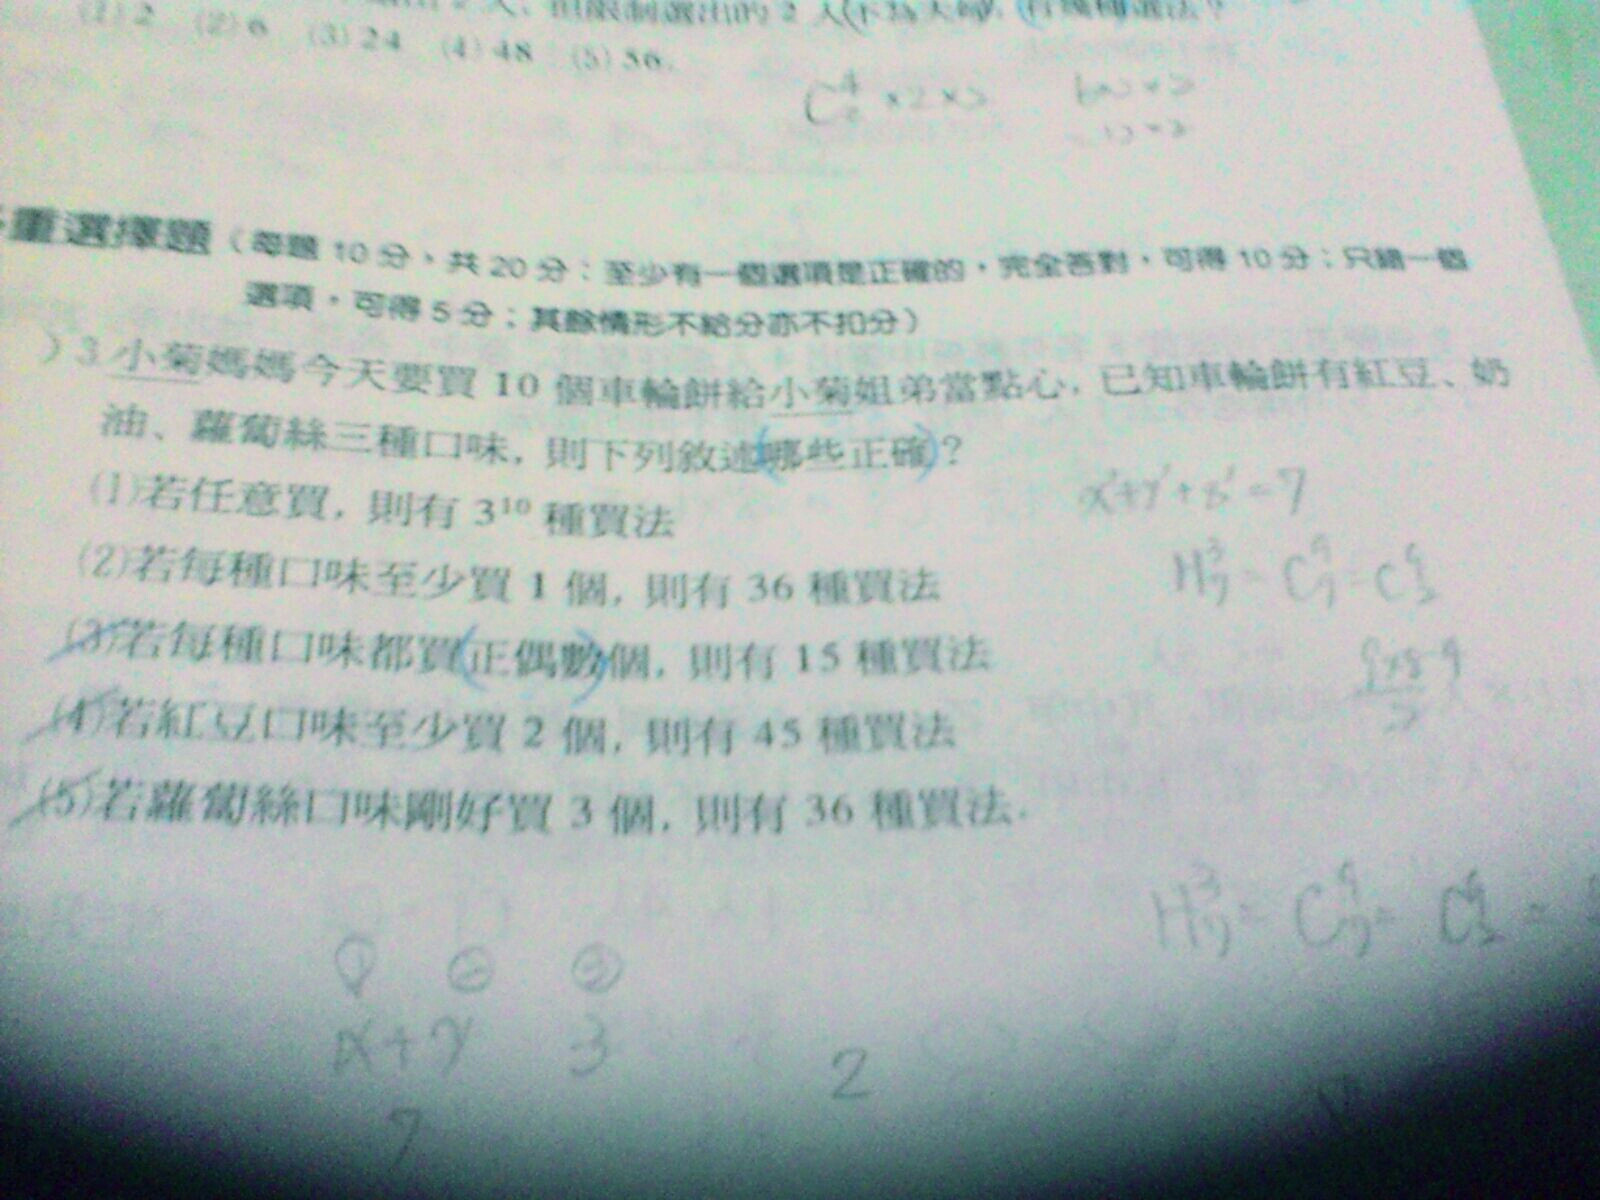 2人，但限制選出的2人(不為夫婦)，有幾種選法？
(1) 2 (2) 6 (3) 24 (4) 48 (5) 56.
重選擇題（每題10分，共20分；至少有一個選項是正確的，完全答對，可得10分；只錯一個
選項，可得5分；其餘情形不給分亦不扣分）
)3.小菊媽媽今天要買 10 個車輪餅給小菊姐弟當點心，已知車輪餅有紅豆、奶
油、蘿蔔絲三種口味，則下列敘述(哪些正確)？
x'+y'+z'=7
(1)若任意買，則有 3¹⁰ 種買法
(2)若每種口味至少買 1 個，則有 36 種買法
(3)若每種口味都買(正偶數)個，則有 15 種買法
(4)若紅豆口味至少買 2 個，則有 45 種買法
(5)若蘿蔔絲口味剛好買 3 個，則有 36 種買法.
x+y 3
2
7